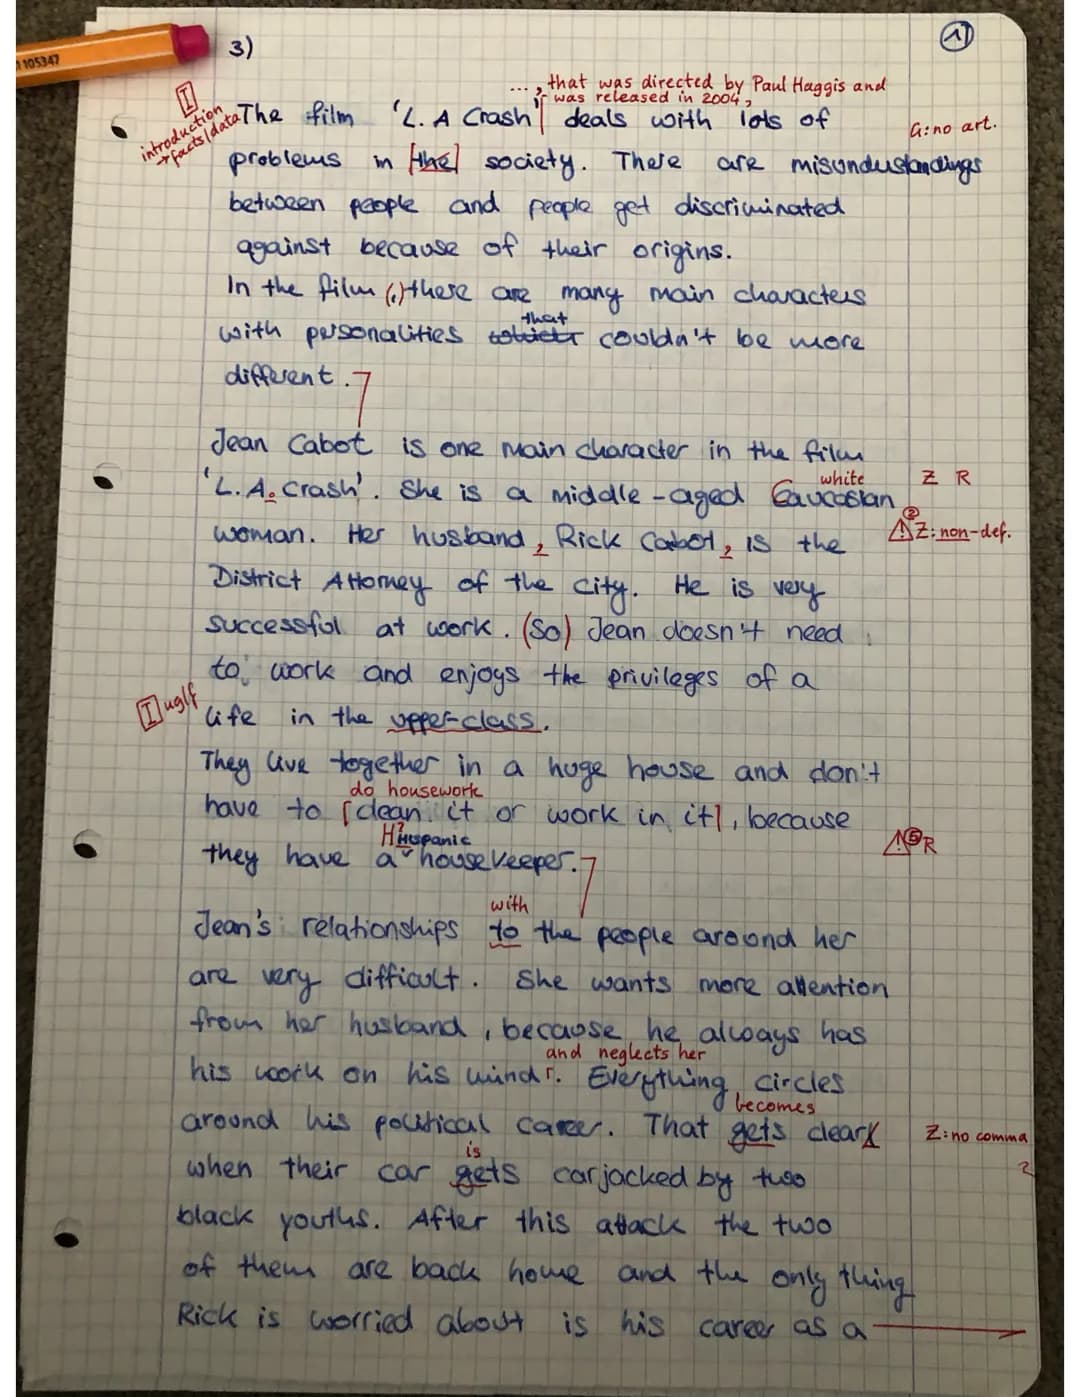 105347
3)
1)
..., that was directed by Paul Haggis and
was released in 2004,
I
introduction
→ facts/data
The film 'L. A Crash' deals with lots of
G: no art.
problems in [the] society. There are misunderstandings
between people and people get discriminated
against because of their origins.
In the film (,) there are many main characters
that
with personalities which couldn't be more
different.
Jean Cabot is one main character in the film
white
Z R
'L.A. Crash'. She is a middle-aged Caucasian
2
Z: non-def.
woman. Her husband, Rick Cabot, is the
District Attorney of the city. He is very
successful at work. (So) Jean doesn't need
to work and enjoys the privileges of a
I uglf
life in the upper-class.
They live together in a huge house and don't
do housework
have to [clean it or work in it], because
Hispanic
5 R
they have a housekeeper.
with
Jean's relationships to the people around her
are very difficult. She wants more attention
from her husband, because he always has
and neglects her
his work on his mind. Everything circles
becomes
around his political career. That gets clear,
Z: no comma
is
when their car gets carjacked by two
black youths. After this attack the two
of them are back home and the only thing
Rick is worried about is his career as a